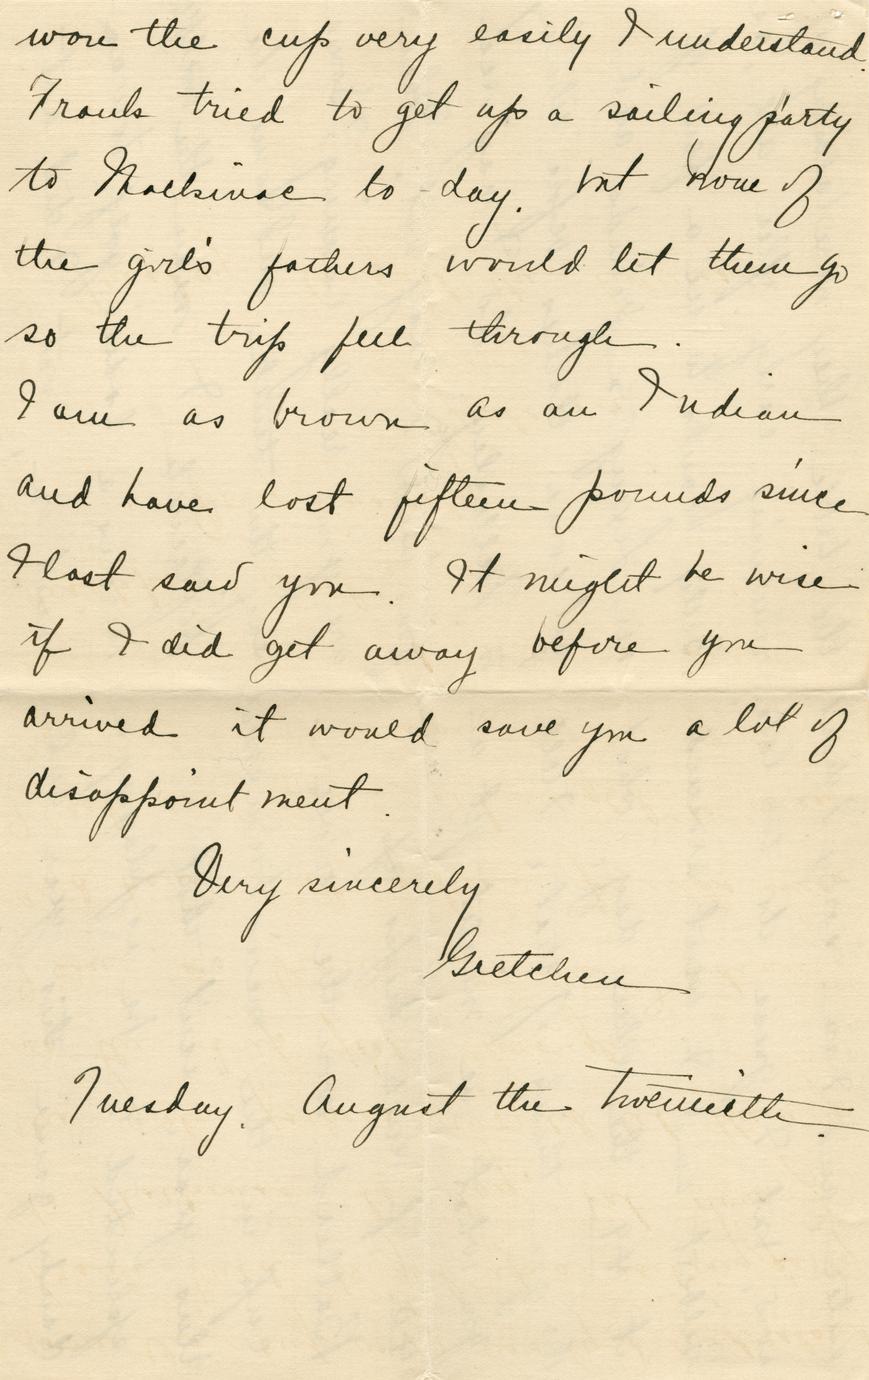 won the cup very easily I understand.
Frank tried to get up a sailing party
to Mackinac to day, but none of
the girl's fathers would let them go
so the trip fell through.
I am as brown as an Indian
and have lost fifteen pounds since
I last saw you. It might be wise
if I did get away before you
arrived it would save you a lot of
disappointment.
Very sincerely
Gretchen
Tuesday. August the twentieth.